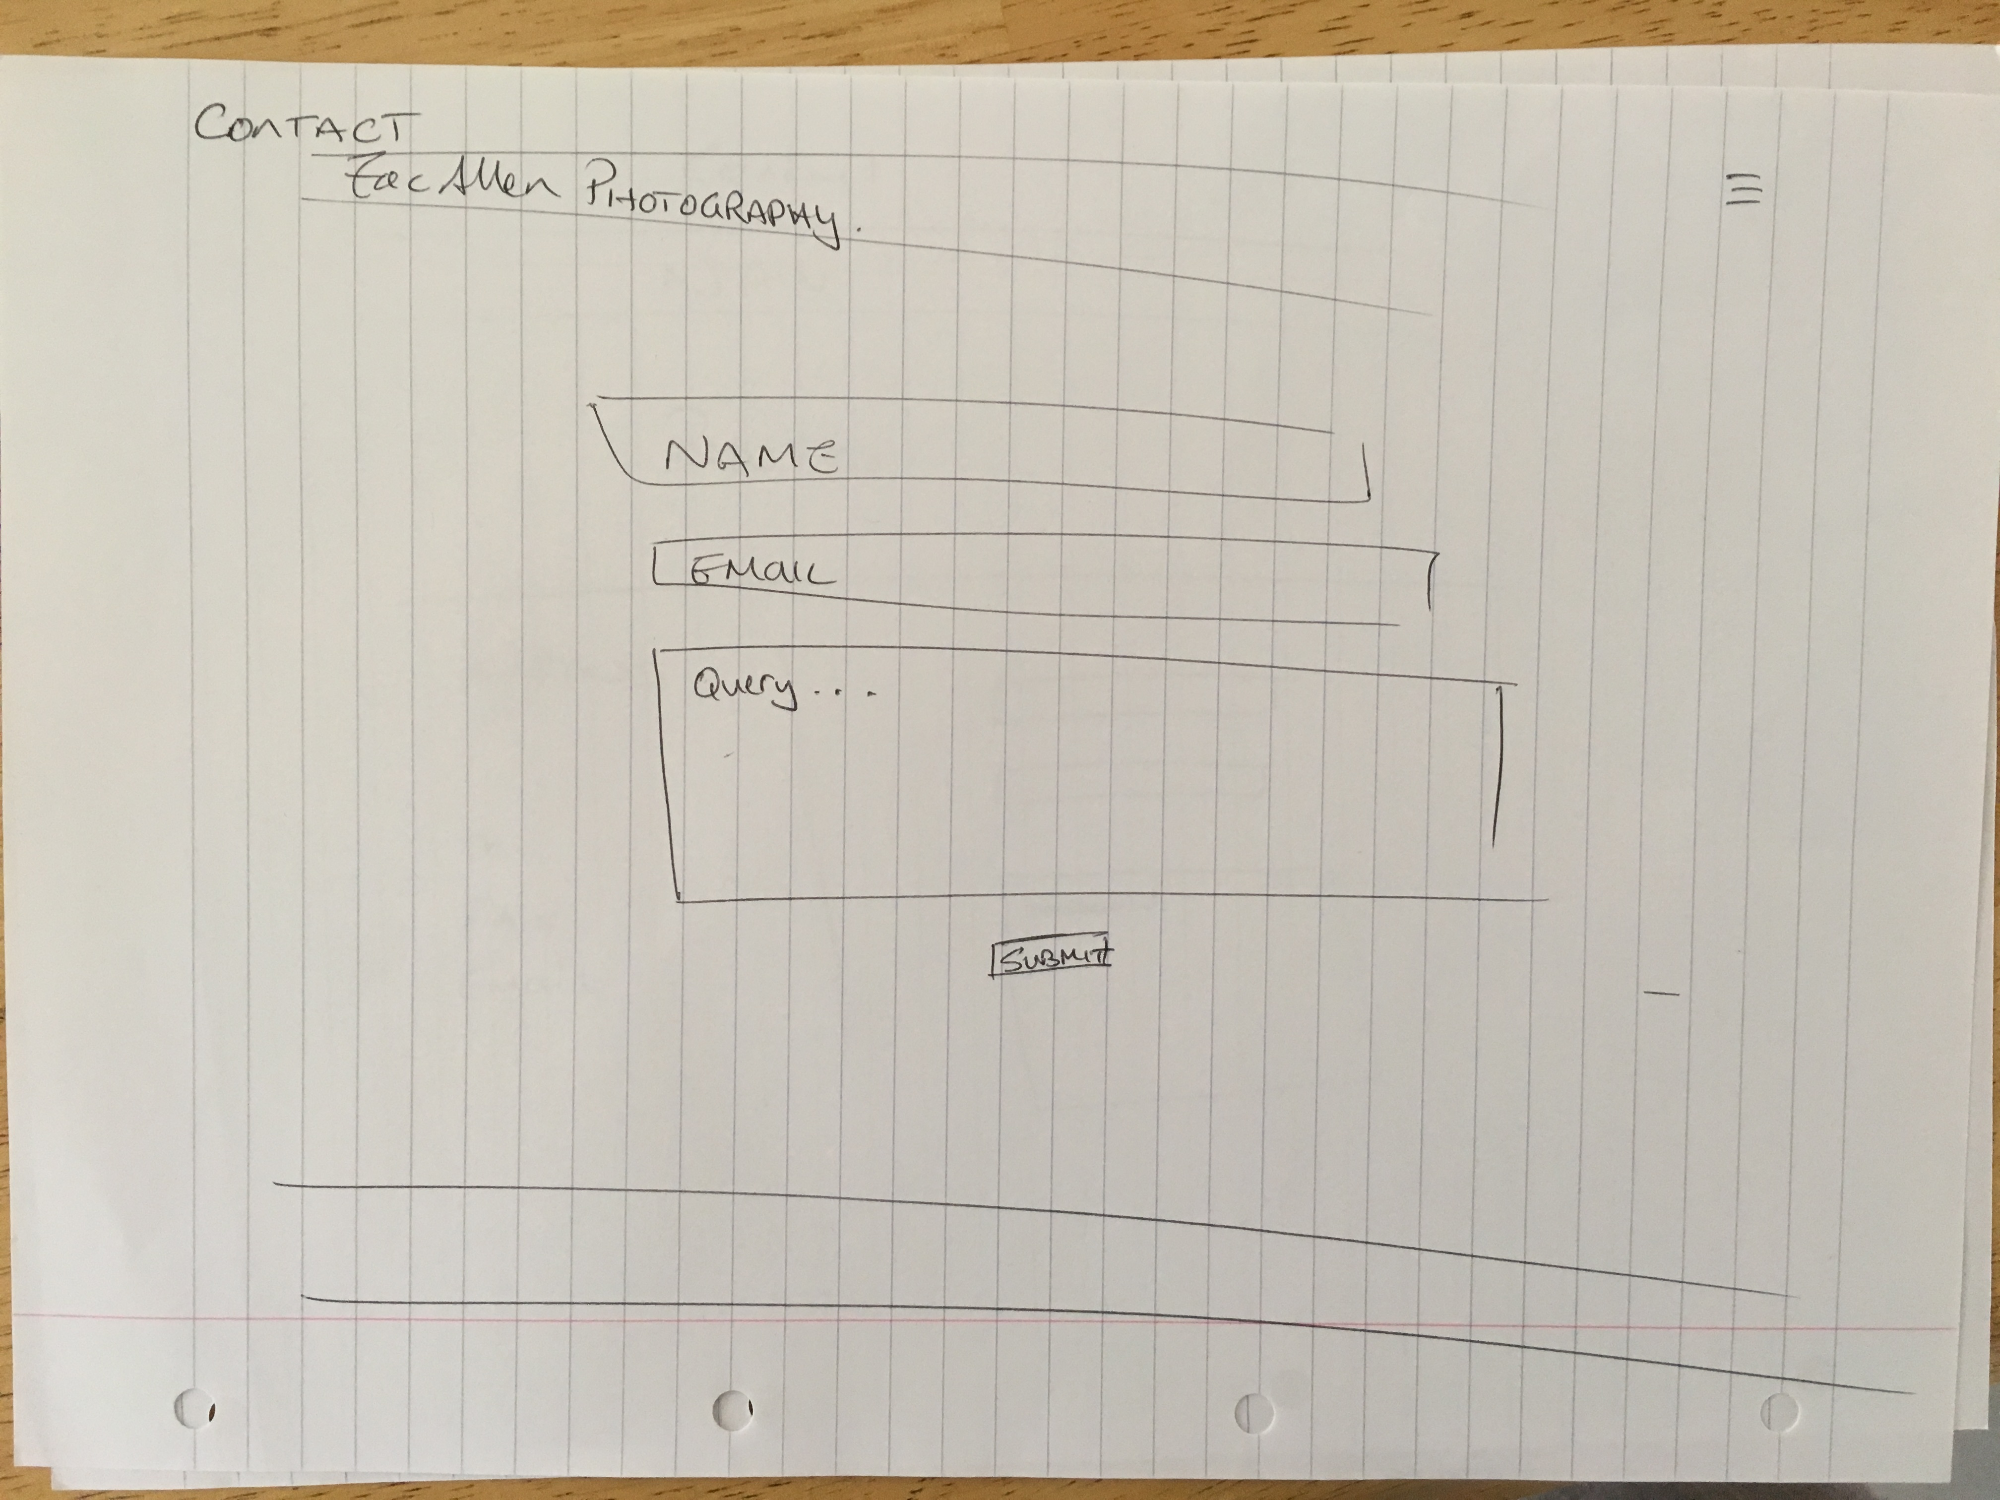 CONTACT
Zac Allen PHOTOGRAPHY.
NAME
EMAIL
Query...
SUBMIT